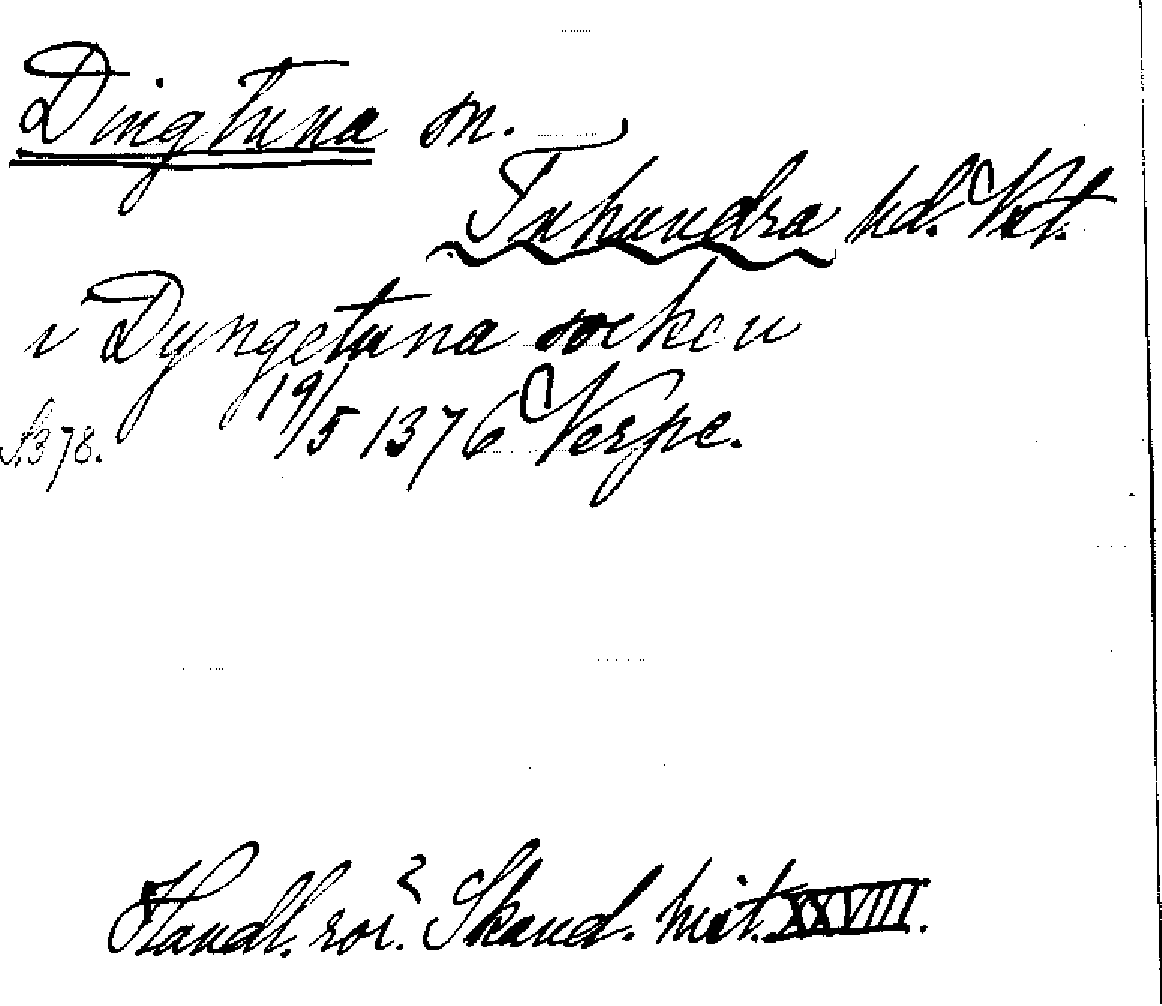 Dingtuna sn.
Tuhundra hd. Vstm.
i Dyngetuna socken
19/5 1376 Verpe.
S. 378.
Handl. rör. Skand. hist. XXVIII.